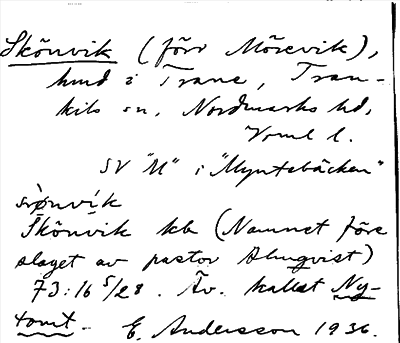 Skönvik (förr Mörevik),
hmd i Trane, Tran-
kils sn, Nordmarks hd,
Vrml l.
SV "M" i "Myntebäcken"
sȯnvik
Skönvik kb (Namnet före
slaget av pastor Almqvist)
73:16 5/28. Äv. kallat Ny-
tomt. E. Andersson 1936.